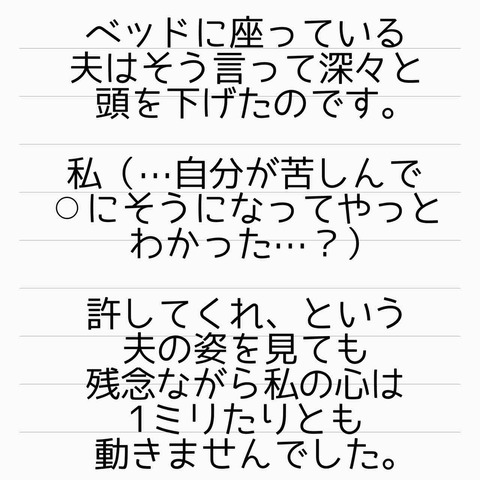 ベッドに座っている
夫はそう言って深々と
頭を下げたのです。
私（…自分が苦しんで
○にそうになってやっと
わかった…？）
許してくれ、という
夫の姿を見ても
残念ながら私の心は
1ミリたりとも
動きませんでした。